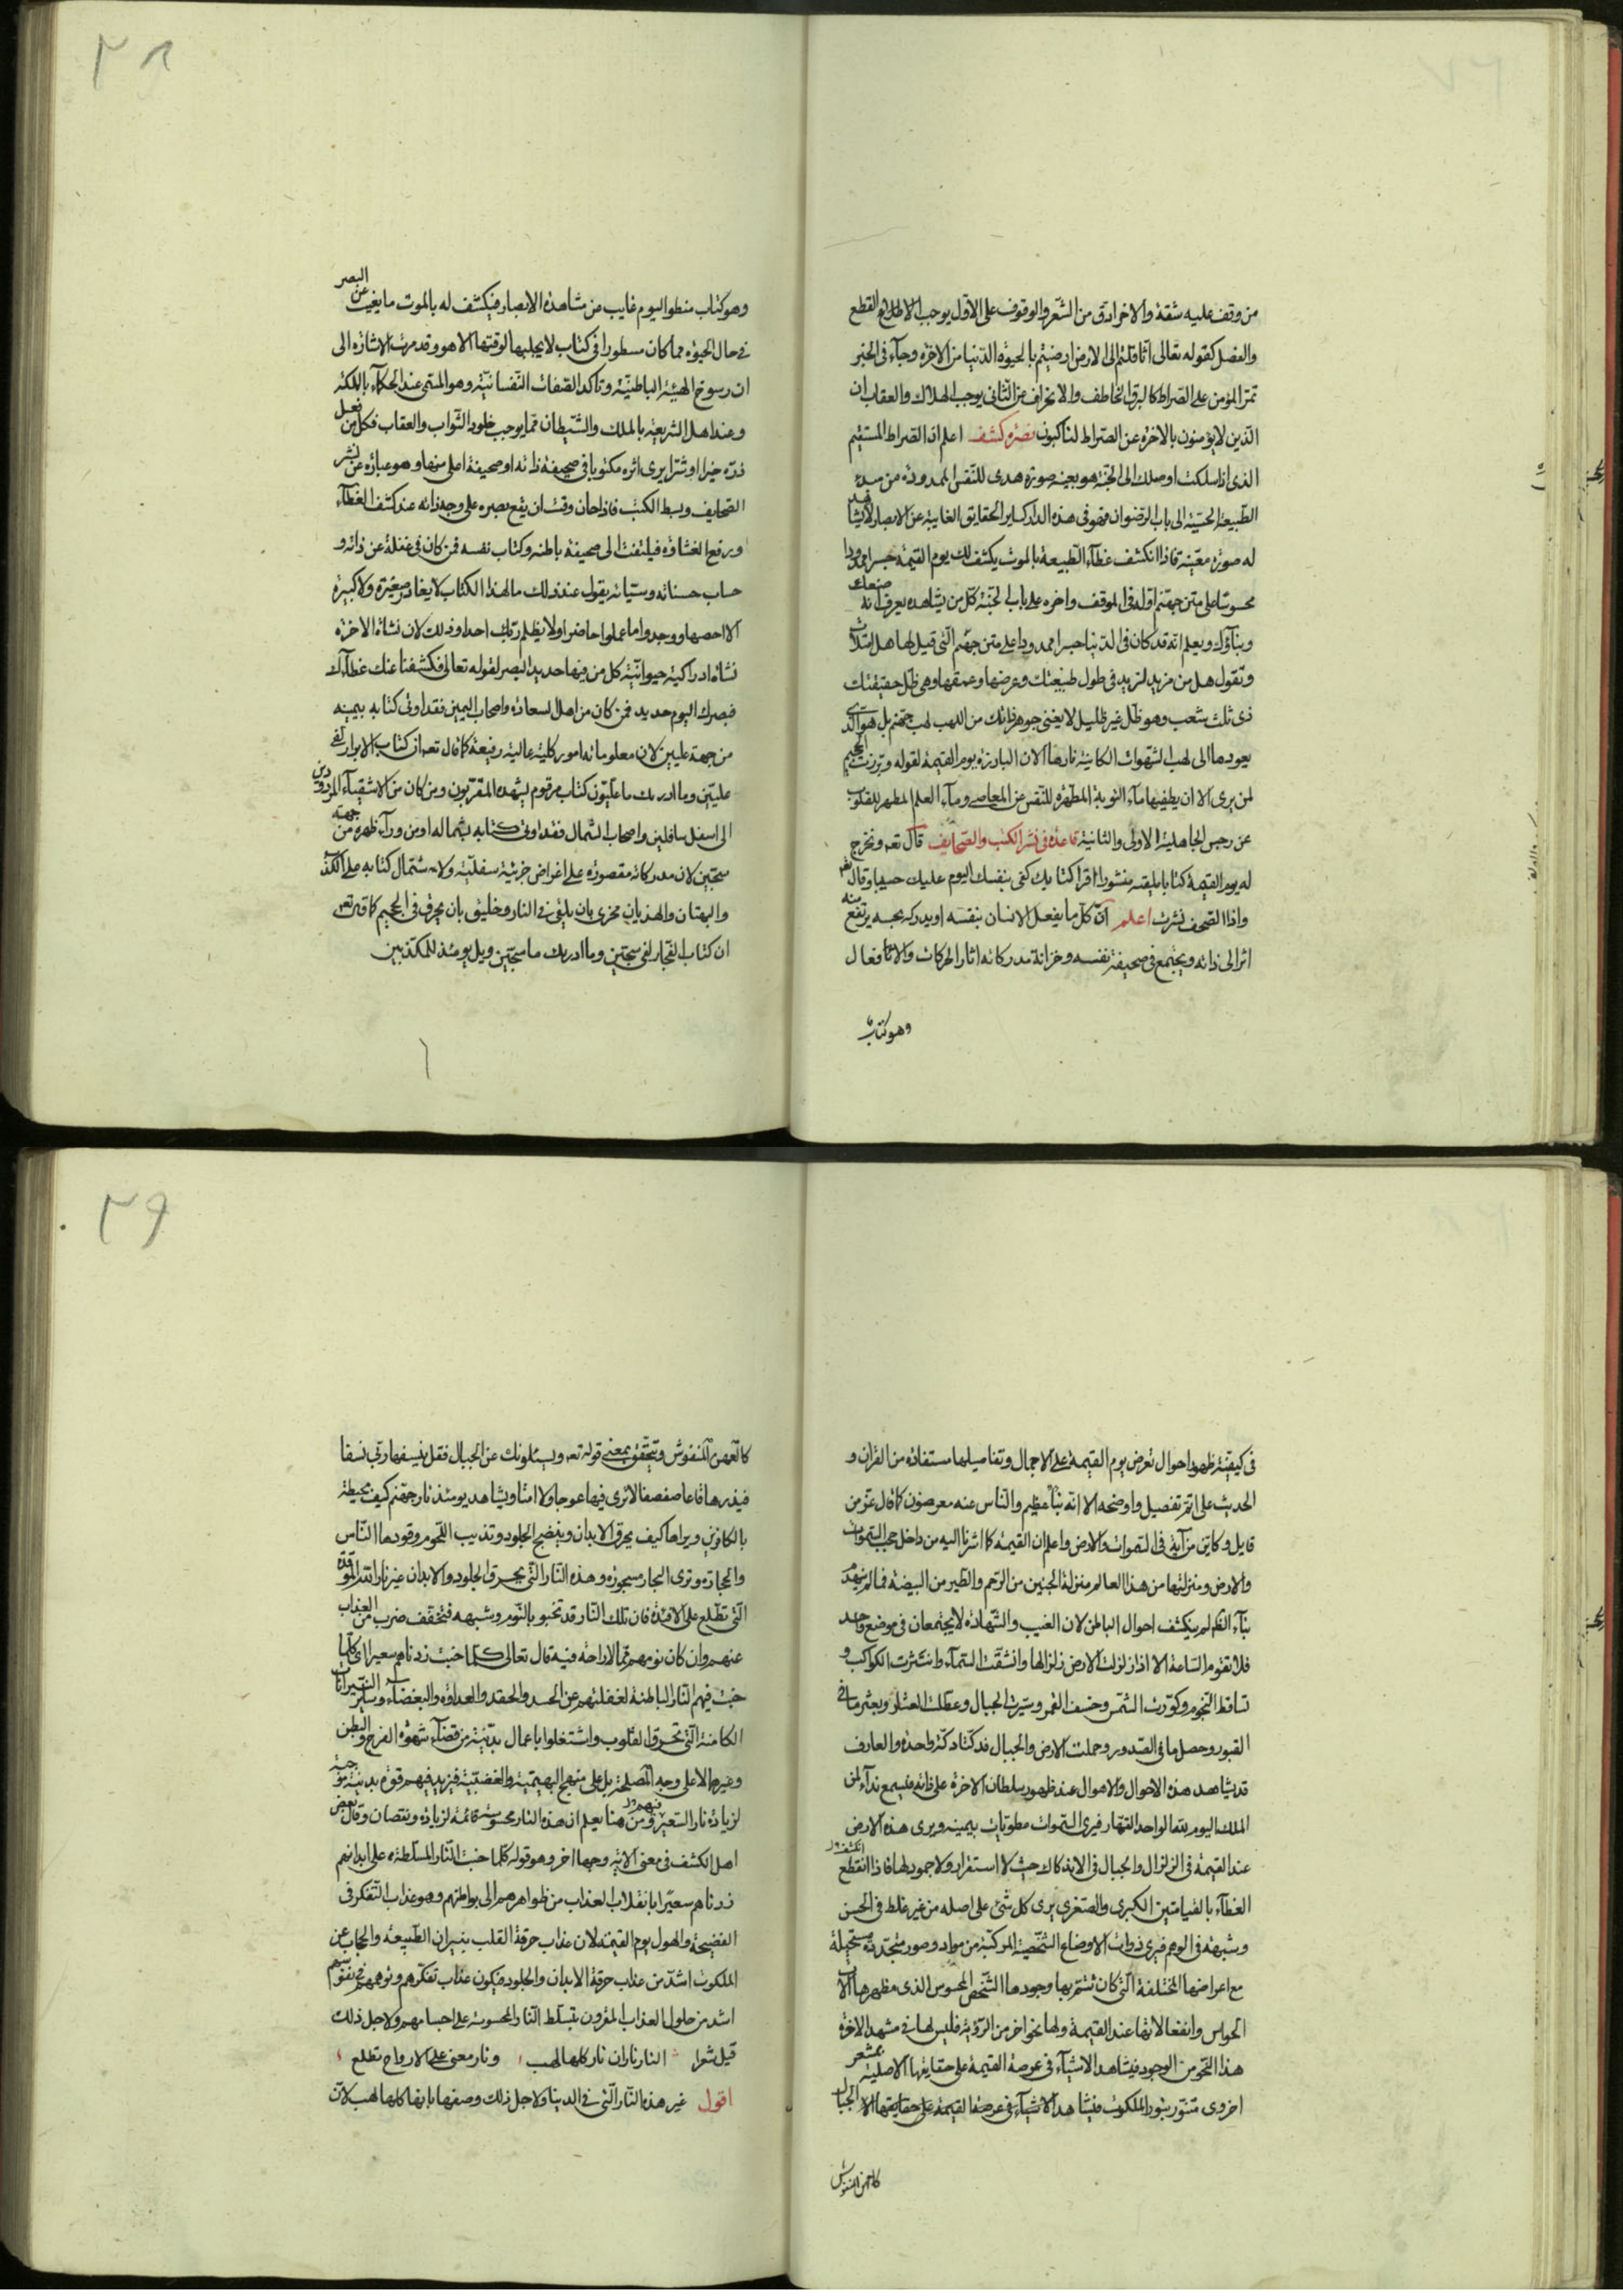 من وقف عليه شقه والاخر ادق من الشعر والوقوف على الاول يوجب القطع
والفصل كقوله تعالى اثاقلتم الى الارض ارضيتم بالحيوة الدنيا من الاخرة وجاء فى الخبر
تمر المؤمن على الصراط كالبرق الخاطف والانحراف عن الثانى يوجب الهلاك والعقاب ان
الذين لايؤمنون بالاخرة عن الصراط لناكبون تبصره كشف اعلم ان الصراط المستقيم
الذى اذا سلكت اوصلك الى الجنة هو بعينه صورة هدى للنفس الممدودة من مبدء
الطبيعة الحسية الى باب الرضوان فهو فى هذه الدار كساير الحقايق الغايبة عن الابصار
له صورة معينة فاذا انكشف غطاء الطبيعة بالموت يكشف لك يوم القيمة جسرا ممدودا
محسوسا على متن جهنم اوله فى الموقف واخره على باب الجنة كل من يشاهده يعرف انه صنعك
وبناؤك ويعلم انه قد كان فى الدنيا جسرا ممدودا على متن جهنم التى قيل لها هل امتلات
وتقول هل من مزيد لتزيد فى طول طبيعتك وعرضها وعمقها وهى ظل حقيقتك
ذى ثلث شعب وهو ظل غير ظليل لايغنى جوهر ذاتك من اللهب لهب جهنم بل هو الذى
يعودها الى لهب الشهوات الكائنة نارها الان البارزة يوم القيمة لقوله وبرزت الجحيم
لمن يرى الا ان يطفيها ماء التوبة المطهرة للنفس عن المعاصى وماء العلم المطهر للقلوب
عن رجس الجاهلية الاولى والثانية قاعدة فى نشر الكتب والصحايف قال تعه ونخرج
له يوم القيمة كتابا يلقيه منشورا اقرا كتابك كفى بنفسك اليوم عليك حسيبا وقال تعه
واذا الصحف نشرت اعلم ان كل ما يفعل الانسان بنفسه او يدركه بحسه يرتفع منه
اثر الى ذاته ويجتمع فى صحيفة نفسه وخزانة مدركاته اثار الحركات والافعال
وهو كتاب
٣٨
وهو كتاب منطو اليوم غايب عن مشاهدة الابصار فيكشف له بالموت ما يغيب عن البصر
فى حال الحيوة مما كان مسطورا فى كتاب لايجليها لوقتها الا هو وقد مرت الاشارة الى
ان رسوخ الهيئة الباطنية وتاكد الصفات النفسانية وهو المسمى عند الحكماء بالملكة
وعند اهل الشريعة بالملك والشيطان مما يوجب خلود الثواب والعقاب فكل من فعل
ذرة خيرا او شرا يرى اثره مكتوبا فى صحيفة ذاته او صحيفة اعلى منها وهو عبارة عن نشر
الصحايف وبسط الكتب فاذا حان وقت ان يقع بصره على وجه ذاته عند كشف الغطاء
ورفع الغشاوة فيلتفت الى صحيفة باطنه وكتاب نفسه فمن كان فى غفلة عن ذاته و
حساب حسناته وسيئاته يقول عند ذلك مالهذا الكتاب لايغادر صغيرة ولا كبيرة
الا احصها ووجدوا ما عملوا حاضرا ولا يظلم ربك احدا وذلك لان نشاة الاخرة
نشاة ادراكية حيوانية كل من فيها حديد البصر لقوله تعالى فكشفنا عنك غطاءك
فبصرك اليوم حديد فمن كان من اهل السعادة واصحاب اليمين فقد اوتى كتابه بيمينه
من جهة عليين لان معلوماته امور كلية عالية رفيعة كما قال تعه ان كتاب الابرار لفى
عليين وما ادريك ما عليون كتاب مرقوم يشهده المقربون ومن كان من الاشقياء المردودين
الى اسفل سافلين واصحاب الشمال فقد اوتى كتابه بشماله او من وراء ظهره من جهة
سجين لان مدركاته مقصورة على اغراض جزئية سفلية ولاشتمال كتابه على الكذب
والبهتان والهذيان فحرى بان يلقى فى النار وخليق بان يحرق فى الجحيم كما قال تعه
ان كتاب الفجار لفى سجين وما ادريك ما سجين ويل يومئذ للمكذبين
فى كيفية ظهور احوال تعرض يوم القيمة على الاجمال وتفاصيلها مستفادة من القران و
الحديث على اتم تفصيل واوضحه الا انه نبأ عظيم والناس عنه معرضون كما قال عز من
قايل وكاين من اية فى السموات والارض واعلم ان القيمة كما اشرنا اليه من داخل حجب السموات
والارض ومنزلتها من هذا العالم منزلة الجنين من الرحم والطير من البيضة فما لم ينهدم
بناء الظاهر لم ينكشف احوال الباطن لان الغيب والشهادة لايجتمعان فى موضع واحد
فلا تقوم الساعة الا اذا زلزلت الارض زلزالها وانشقت السماء وانتثرت الكواكب و
تساقط النجوم وكورت الشمس وخسف القمر وسيرت الجبال وعطلت العشار وبعثر ما فى
القبور وحصل ما فى الصدور وحملت الارض والجبال فدكتا دكة واحدة والعارف
قد يشاهد هذه الاحوال والاهوال عند ظهور سلطان الاخرة على ذاته فيسمع نداء لمن
الملك اليوم لله الواحد القهار فيرى السموات مطويات بيمينه ويرى هذه الارض
عند القيمة فى الزلزال والجبال فى الاندكاك حيث لا استقرار ولا جمود لها فاذا انقطع
الغطاء بالقيامتين الكبرى والصغرى يرى كل شئ على اصله من غير غلط فى الحس
وشبهة فى الوهم فيرى ذوات الاوضاع الشخصية المركبة من مواد وصور متجددة مستحيلة
مع اعراضها المختلفة التى كان تتم بها وجودها الشخصى المحسوس الذى مظهرها
الحواس وانفعالاتها عند القيمة ولها نحو اخر من الرؤية فليس لها فى مشهد الاخرة
هذا النحو من الوجود فيشاهد الاشياء فى عرصة القيمة على حقايقها الاصلية بمشعر
اخروى متنور بنور الملكوت فيشاهد الاشياء فى عرصة القيمة على حقايقها الجبال
كالعهن المنفوش
٣٩
كالعهن المنفوش ويتحقق بمعنى قوله تعه ويسئلونك عن الجبال فقل ينسفها ربى نسفا
فيذرها قاعا صفصفا لاترى فيها عوجا ولا امتا ويشاهد يومئذ نار جهنم كيف محيطة
بالكافرين ويراها كيف يحرق الابدان وينضج الجلود وتذيب اللحوم وقودها الناس
والحجارة وترى البحار مسجورة وهذه النار التى يحرق الجلود والابدان غير نار الله الموقدة
التى تطلع على الافئدة فان تلك النار قد تخبو بالنوم وشبهه فتخفف ضرب من العذاب
عنهم وان كان نومهم مما لاراحة فيه قال تعالى كلما خبت زدناهم سعيرا اى كلما
خبت فيهم النار الباطنة لغفلتهم عن الحسد والحقد والعداوة والبغضاء وساير النيرانات
الكامنة التى تحرق القلوب واشتغلوا باعمال بدنية من قضاء شهوة الفرج والبطن
وغيرها لا على وجه المصلحة بل على منهج البهيمية والغضبية فيزيد فيهم قوة بدنية موجبة
لزيادة نار السعير فيهم ومن هنا يعلم ان هذه النار محسوسة قابلة لزيادة ونقصان وقال بعض
اهل الكشف فى معنى الاية وجها اخر وهو قوله كلما خبت النار المسلطة على ابدانهم
زدناهم سعيرا بانقلاب العذاب من ظواهرهم الى بواطنهم وهو عذاب التفكر فى
الفضيحة والهول يوم القيمة لان عذاب حرقة القلب بنيران الطبيعة والحجاب عن
الملكوت اشد من عذاب حرقة الابدان والجلود فيكون عذاب تفكرهم وتوهمهم فى نفوسهم
اشد من حلول العذاب المقرون بتسلط النار المحسوسة على اجسامهم ولاجل ذلك
قيل شعرا النار ناران نار كلها لهب ونار معنى على الارواح تطلع
اقول غير هذه النار التى فى الدنيا ولاجل ذلك وصفها بانها كلها لهب لان